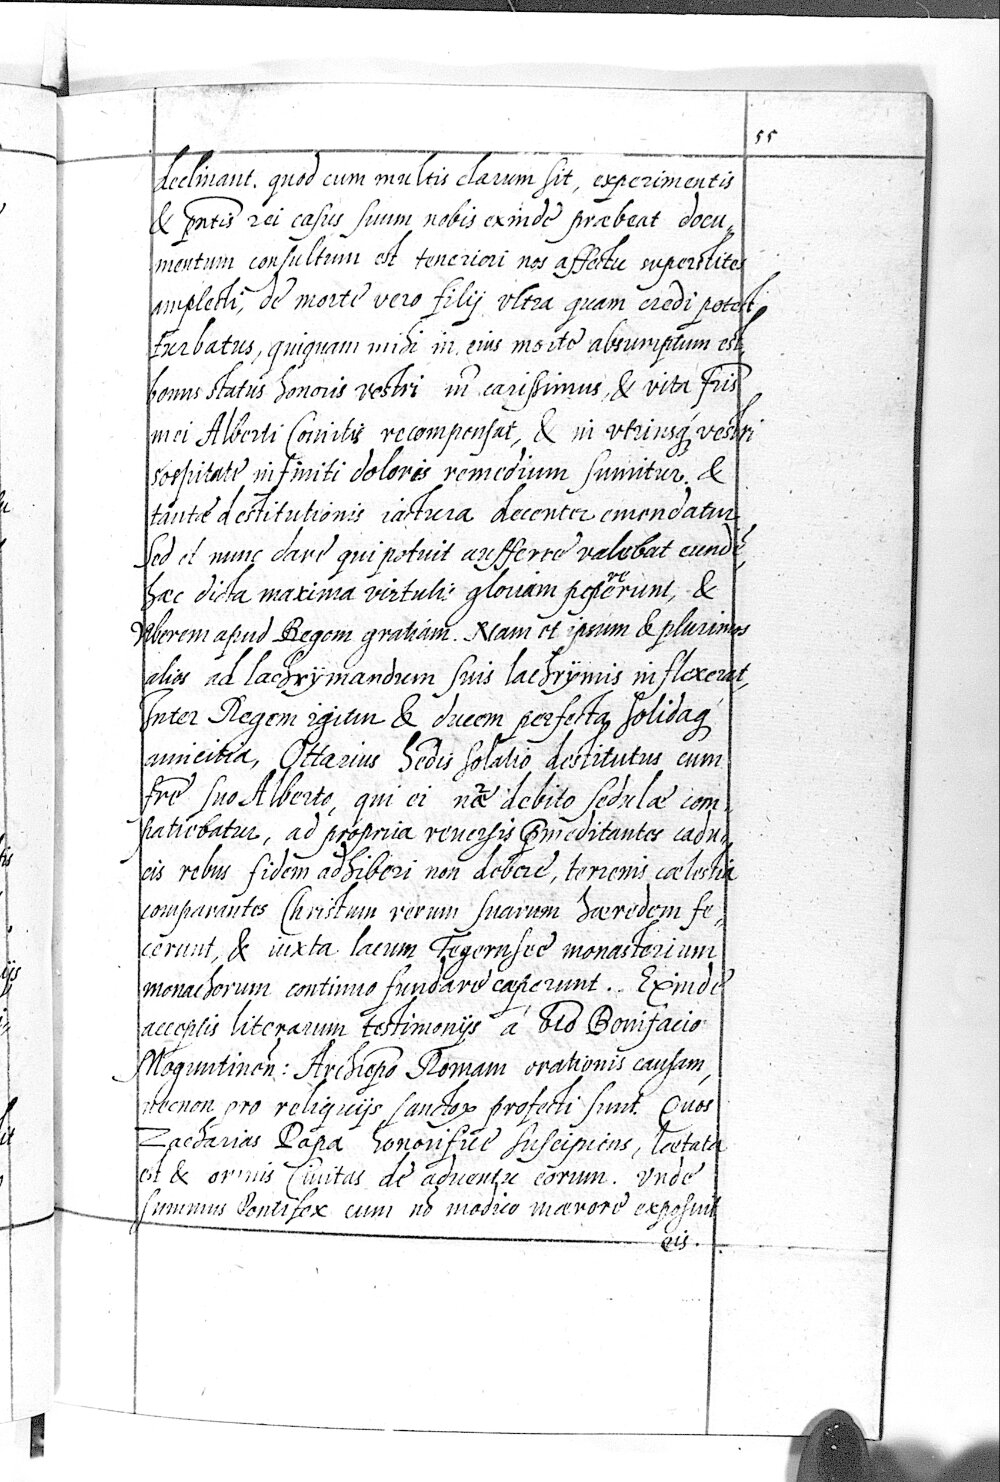 55
declinant. quod cum multis clarum sit, experimentis
& pñtis rei casus suum nobis exinde præbeat docu„
mentum consultum est teneriori nos affectu superstites
amplecti, de morte vero filij vltra quam credi potest
turbatus, quiquam mihi in eius morte absumptum est,
bonus status honoris vestri mi carissimus, & vita fris
mei Alberti Comitis recompensat, & in vtriusq́ vestri
sospitate infiniti doloris remedium sumitur. &
tantæ destitutionis iactura decenter emendatur
sed et nunc dare qui potuit aufferre valebat eundẽ,
hæc dicta maxima virtutis gloriam pepererunt, &
Vberem apud Regem gratiam. Nam et ipsum & plurimos
alios ad lachrÿmandum suis lachrÿmis inflexerat,
Inter Regem igitur & ducem perfecta solidaq́
amicitia, Ottarius hedis solatio destitutus cum
frẽ suo Alberto, qui ei nãæ debito sedulæ com„
patiebatur, ad propria reuersis præmeditantes cadu„
cis rebus fidem adhiberi non debere, terrenis cælestia
comparantes Christum rerum suarum hæredem fe„
cerunt, & iuxta lacum Tegernsee monasterium
monachorum continuo fundare cæperunt. Exinde
acceptis literarum testimonijs á bto Bonifacio
Moguntinen: Archiepo Romam orationis causam,
necnon pro reliquijs sanctoꝝ profecti sunt. Quos
Zacharias Papa honorifice suscipiens, lætata
est & omnis Ciuitas de aduentu eorum. Vnde
summus Pontifex cum nõ modico mærore exposuit
eis.